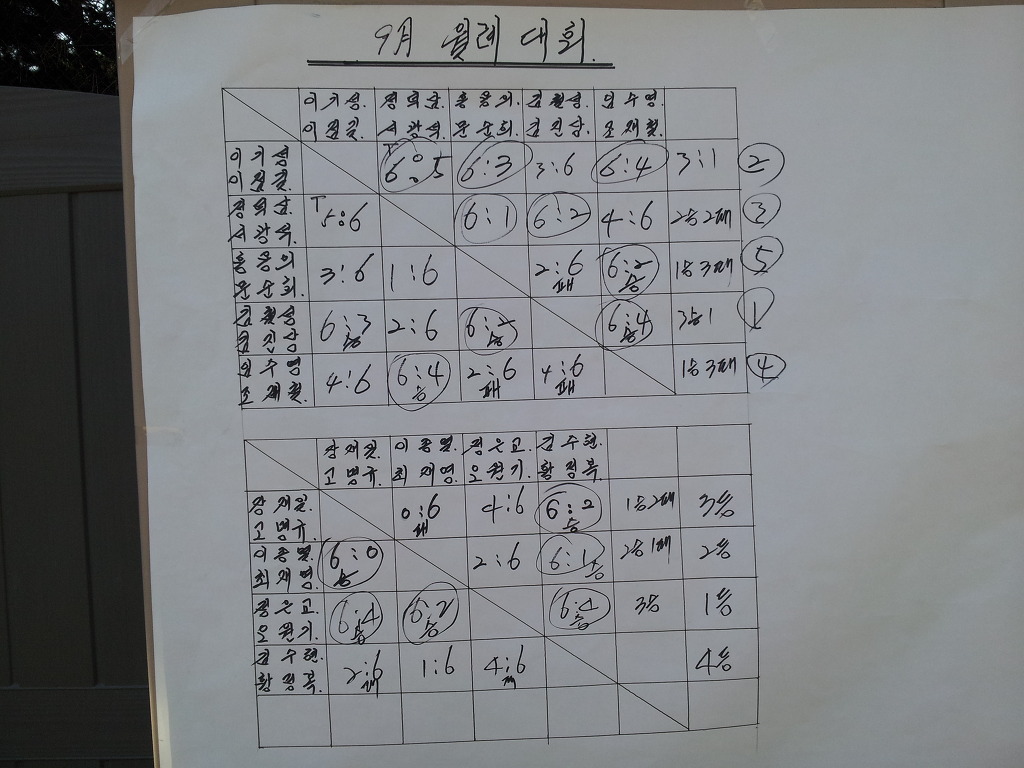 9月 월례 대회.
이기성. 정희순. 홍웅의. 김철성. 원수영.
이점길. 서광석. 문순희. 김진남. 조재철.
이기성 6:5 6:3 3:6 6:4 3:1 ②
이점길.
정희순. T 5:6 6:1 6:2 4:6 2승2패 ③
서광석.
홍웅의 3:6 1:6 2:6 패 6:2 승 1승3패 ⑤
문순희.
김철성 6:3 승 2:6 6:2 승 6:4 승 3승1 ①
김진남
원수영 4:6 6:4 승 2:6 패 4:6 패 1승3패 ④
조재철.
장재길. 이종열. 정은교. 김수현.
고명규. 최재영. 오원기. 황정복.
장재길. 0:6 패 4:6 6:2 승 1승2패 3등
고명규.
이종열 6:0 승 2:6 6:1 승 2승1패 2등
최재영.
정은교. 6:4 승 6:2 승 6:4 승 3승 1등
오원기.
김수현. 2:6 패 1:6 4:6 패 4등
황정복